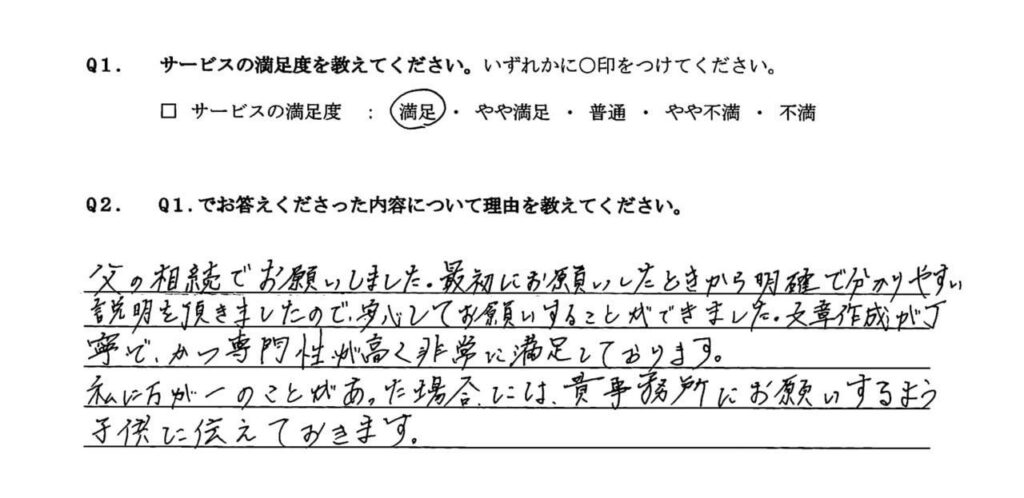 Q1. サービスの満足度を教えてください。いずれかに○印をつけてください。
□ サービスの満足度 : 満足・ やや満足 ・ 普通 ・ やや不満 ・ 不満
Q2. Q1.でお答えくださった内容について理由を教えてください。
父の相続でお願いしました。最初にお願いしたときから明確で分かりやすい
説明を頂きましたので、安心してお願いすることができました。文章作成が丁
寧で、かつ専門性が高く非常に満足しております。
私に万が一のことがあった場合には、貴事務所にお願いするよう
子供に伝えておきます。